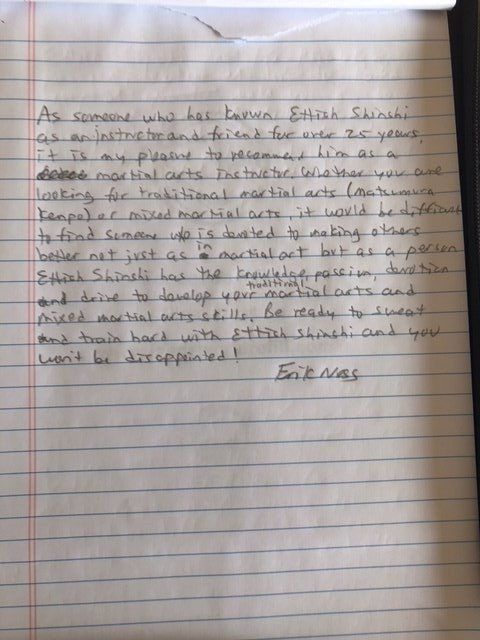 As someone who has known Ettish Shinshi
as an instructor and friend for over 25 years,
it is my pleasure to recommend him as a
martial arts instructor. Whether you are
looking for traditional martial arts (Matsumura
Kenpo) or mixed martial arts, it would be difficult
to find someone who is devoted to making others
better not just as in martial art but as a person
Ettish Shinshi has the knowledge, passion, devotion
and drive to develop your traditional martial arts and
mixed martial arts skills. Be ready to sweat
and train hard with Ettish Shinshi and you
won't be disappointed!
Erik Ness